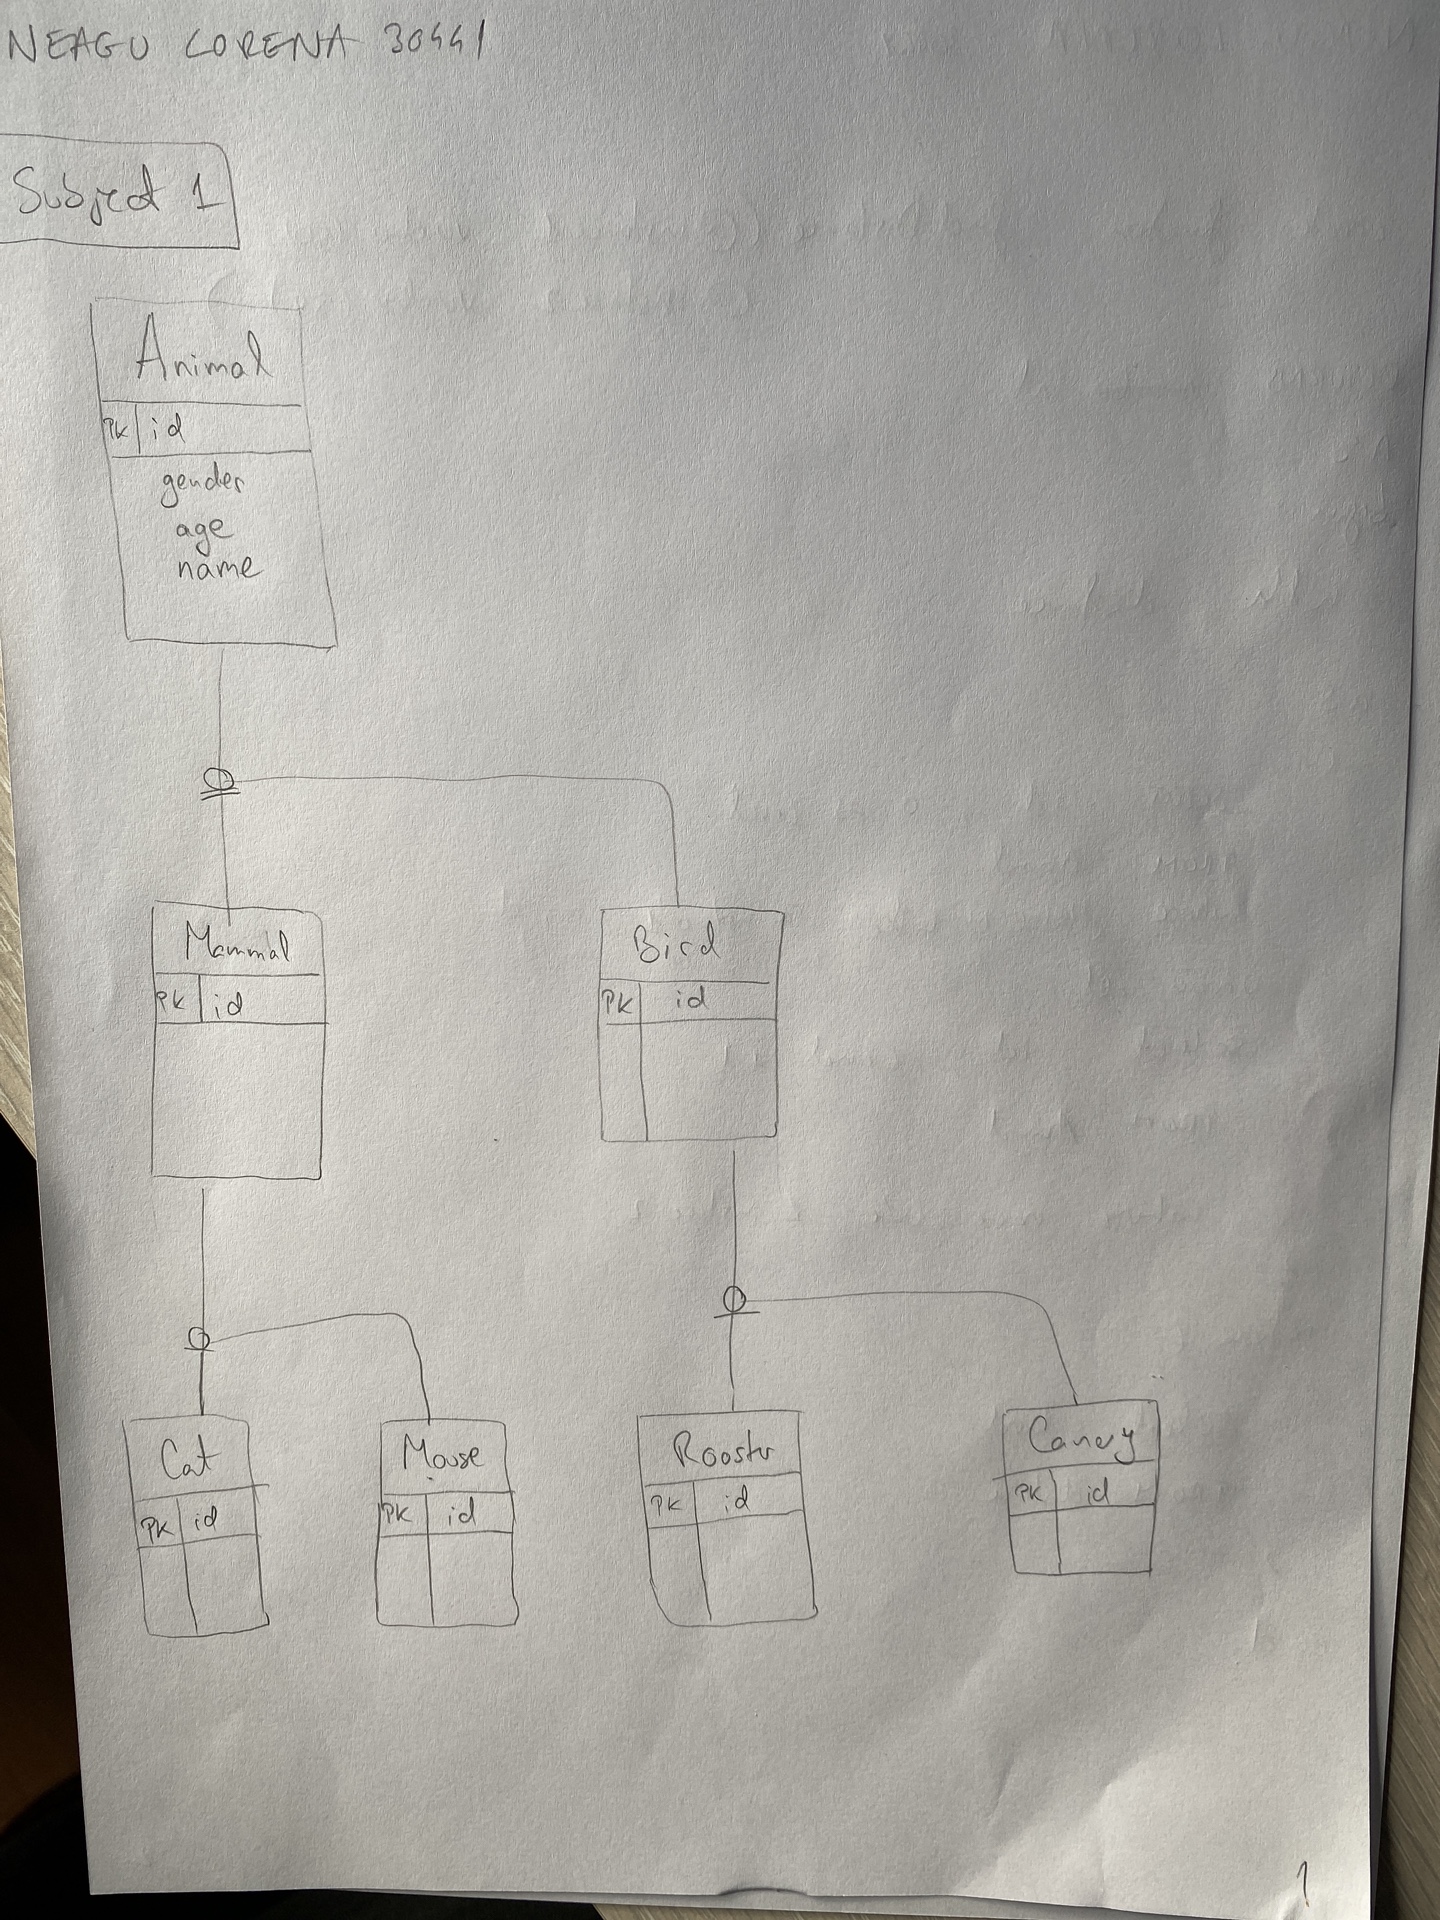 NEAGU LORENA 30441
Subject 1
Animal
PK id
gender
age
name
Mammal
PK id
Bird
PK id
Cat
PK id
Mouse
PK id
Rooster
PK id
Canary
PK id
1